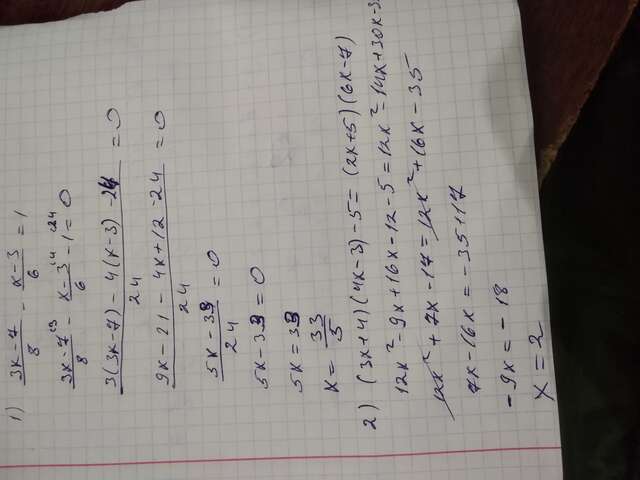 1) (3x-7)/8 - (x-3)/6 = 1
(3x-7)/8 - (x-3)/6 - 1 = 0
(3(3x-7) - 4(x-3) - 24)/24 = 0
(9x - 21 - 4x + 12 - 24)/24 = 0
(5x - 33)/24 = 0
5x - 33 = 0
5x = 33
x = 33/5
2) (3x+4)(4x-3) - 5 = (2x+5)(6x-7)
12x² - 9x + 16x - 12 - 5 = 12x² = 14x + 30x - 3
12x² + 7x - 17 = 12x² + 16x - 35
7x - 16x = -35 + 17
-9x = -18
x = 2